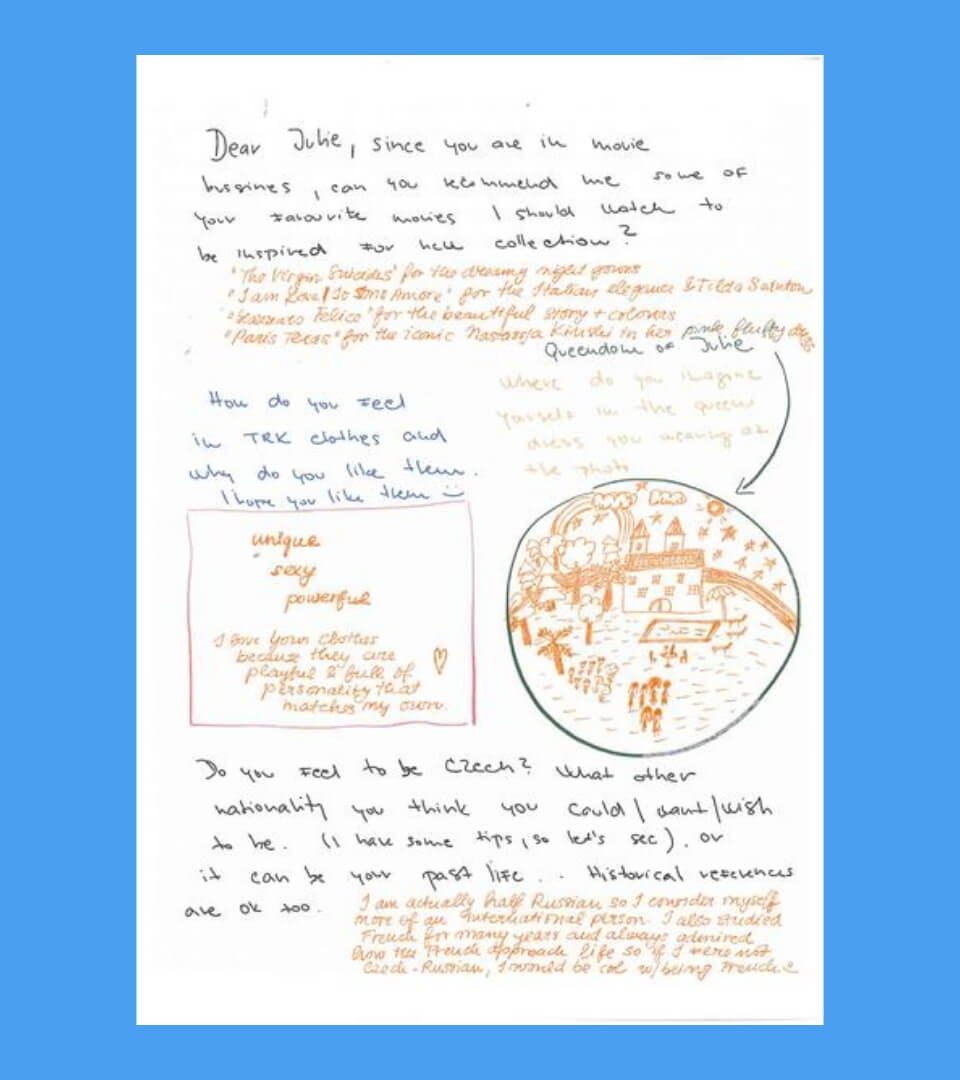 Dear Julie, since you are in movie
bussines, can you recommend me some of
your favourite movies I should watch to
be inspired for new collection?
"The Virgin Suicides" for the dreamy night gowns
"I am Love / Io Sono Amore" for the Italian elegance & Tilda Swinton
Felice" for the beautiful story + colours
"Paris Texas" for the iconic Nastassja Kinski in her pink fluffy dress
Queendom of Julie
How do you feel
in TRK clothes and
why do you like them.
I hope you like them
Where do you imagine
yourself in the queen
dress you wearing at
the photo
unique
sexy
powerful
I love your clothes
because they are
playful & full of
personality that
matches my own.
Do you feel to be Czech? What other
nationality you think you could / want / wish
to be. (I have some tips, so let's see). or
it can be your past life.. Historical references
are ok too.
I am actually half Russian so I consider myself
more of an International person. I also studied
French for many years and always admired
how the French approach life so if I were not
Czech-Russian, I would be w/ being French